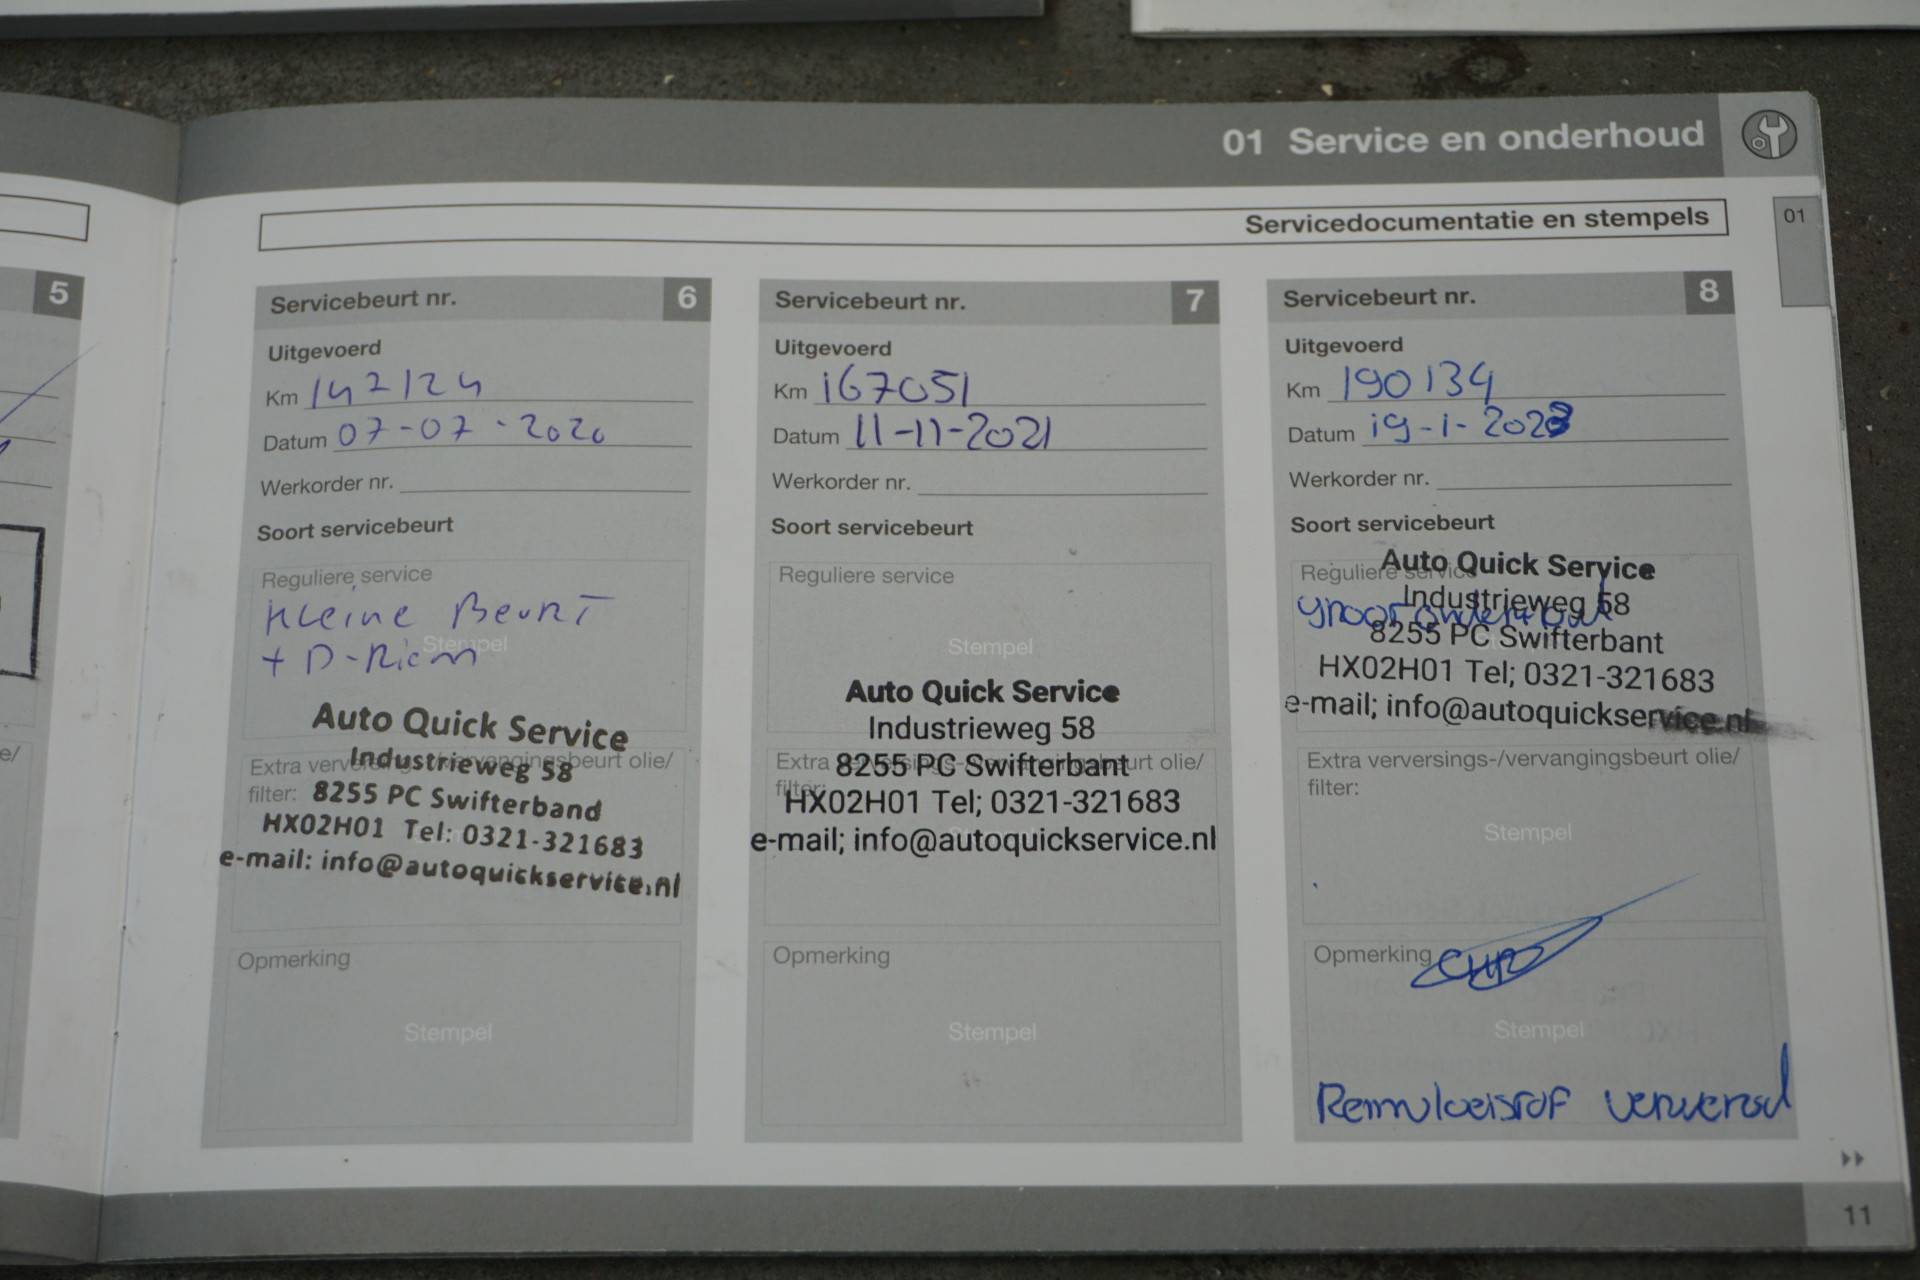 01 Service en onderhoud
Servicedocumentatie en stempels
01
5
e/
Servicebeurt nr. 6
Uitgevoerd
Km 142124
Datum 07-07-2020
Werkorder nr.
Soort servicebeurt
Reguliere service
Kleine Beurt
Stempel
+ D-Riem
Auto Quick Service
Industrieweg 58
Extra verversings-/vervangingsbeurt olie/
filter:
8255 PC Swifterband
HX02H01 Tel: 0321-321683
e-mail: info@autoquickservice.nl
Opmerking
Stempel
Servicebeurt nr. 7
Uitgevoerd
Km 167051
Datum 11-11-2021
Werkorder nr.
Soort servicebeurt
Reguliere service
Stempel
Auto Quick Service
Industrieweg 58
Extra verversings-/vervangingsbeurt olie/
8255 PC Swifterbant
filter:
HX02H01 Tel; 0321-321683
e-mail; info@autoquickservice.nl
Opmerking
Stempel
Servicebeurt nr. 8
Uitgevoerd
Km 190134
Datum 19-1-2023
Werkorder nr.
Soort servicebeurt
Auto Quick Service
Reguliere service
Industrieweg 58
groot onderhoud
8255 PC Swifterbant
HX02H01 Tel; 0321-321683
e-mail; info@autoquickservice.nl
Extra verversings-/vervangingsbeurt olie/
filter:
Stempel
Opmerking
Stempel
Remvloeistof ververst
11